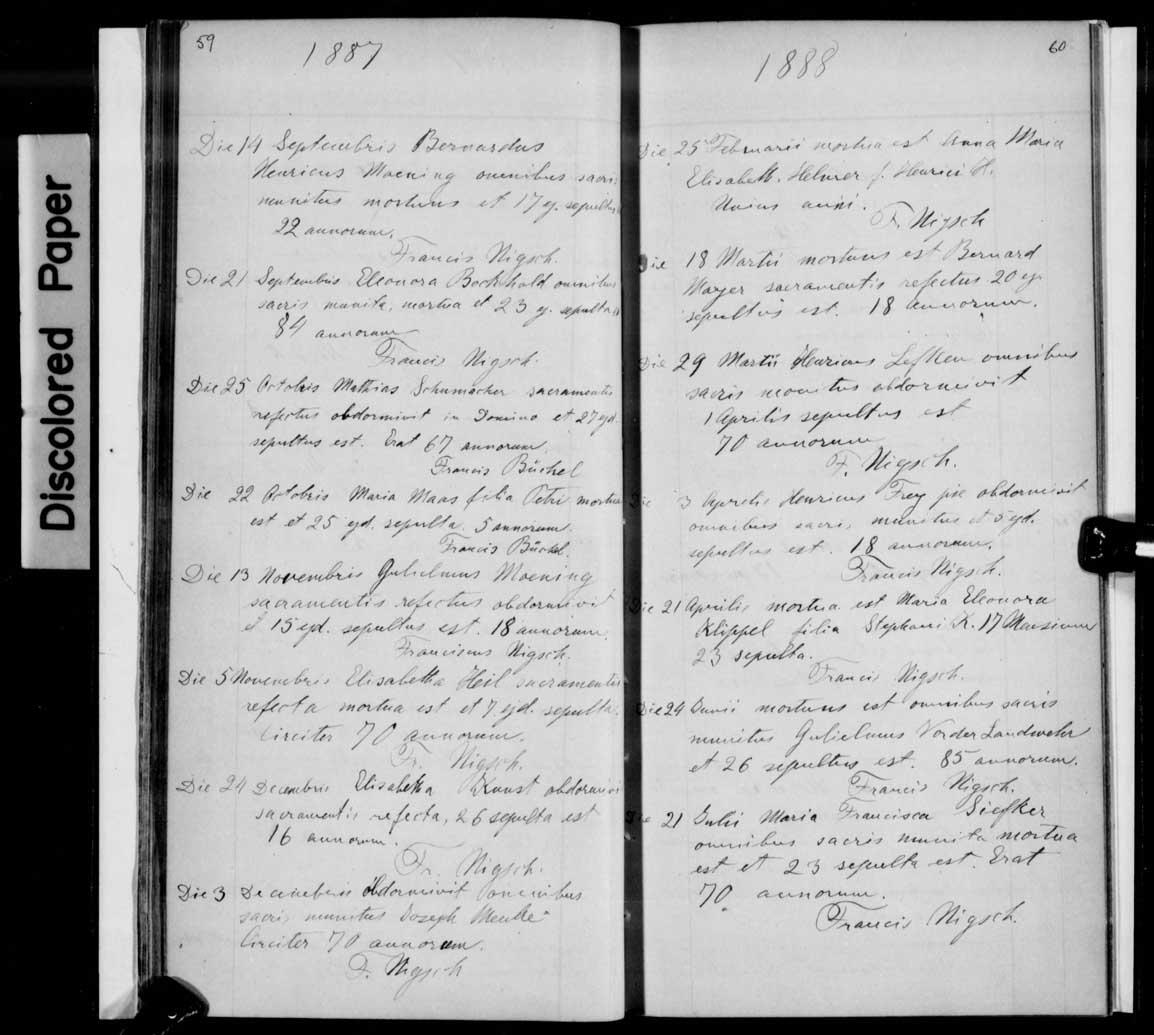 Discolored Paper
59
1887
Die 14 Septembris Bernardus
Henricus Moening omnibus sacris
munitus mortuus et 17 ej. sepultus
22 annorum.
Francis Nigsch.
Die 21 Septembris Eleonora Bockhold omnibus
sacris munita, mortua et 23 ej. sepulta
84 annorum
Francis Nigsch.
Die 25 Octobris Mathias Schumacher sacramentis
refectus obdormivit in Domino et 27 ejd.
sepultus est. Erat 67 annorum.
Francis Büchel
Die 22 Octobris Maria Maas filia Petri mortua
est et 25 ejd. sepulta. 5 annorum.
Francis Büchel.
Die 13 Novembris Gulielmus Moening
sacramentis refectus obdormivit
et 15 ejd. sepultus est. 18 annorum.
Franciscus Nigsch.
Die 5 Novembris Elisabetha Heil sacramentis
refecta mortua est et 7 ejd. sepulta.
Circiter 70 annorum.
Fr. Nigsch.
Die 24 Decembris Elisabetha Kunst obdormivi
sacramentis refecta, 26 sepulta est
16 annorum.
Fr. Nigsch.
Die 3 Decembris obdormivit omnibus
sacris munitus Joseph
Circiter 70 annorum.
F. Nigsch
60
1888
Die 25 Februarii mortua est Anna Maria
Elisabeth. Helmer f. Henrici H.
Unius anni.
F. Nigsch
Die 18 Martii mortuus est Bernard
Mayer sacramentis refectus 20 ej.
sepultus est. 18 annorum.
Die 29 Martii Henricus Lefken omnibus
sacris monitus obdormivit
1 Aprilis sepultus est
70 annorum
F. Nigsch.
Die 3 Aprilis Henricus Frey pie obdormivit
omnibus sacris munitus et 5 ejd.
sepultus est. 18 annorum.
Francis Nigsch.
Die 21 Aprilis mortua est Maria Eleonora
Klippel filia Stephani K. 17 Mensium
23 sepulta.
Francis Nigsch.
Die 24 Junii mortuus est omnibus sacris
munitus Gulielmus Vorder Landwehr
et 26 sepultus est. 85 annorum.
Francis Nigsch.
Die 21 Julii Maria Francisca Siefker
omnibus sacris munita mortua
est et 23 sepulta est. Erat
70 annorum.
Francis Nigsch.